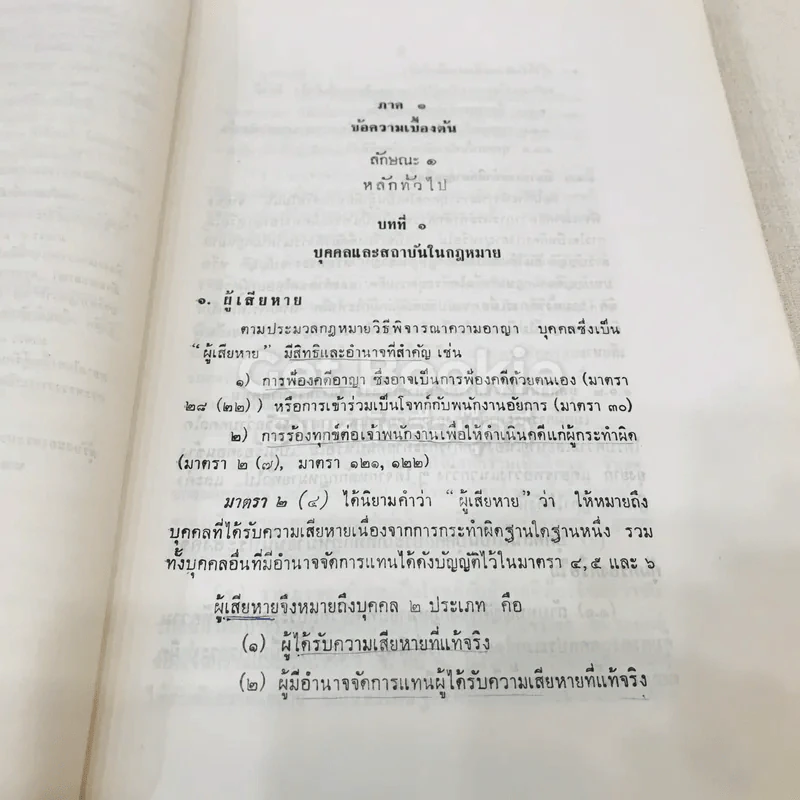 ภาค ๑
ข้อความเบื้องต้น
ลักษณะ ๑
หลักทั่วไป
บทที่ ๑
บุคคลและสถาบันในกฎหมาย
๑. ผู้เสียหาย
ตามประมวลกฎหมายวิธีพิจารณาความอาญา บุคคลซึ่งเป็น
“ผู้เสียหาย” มีสิทธิและอำนาจที่สำคัญ เช่น
๑) การฟ้องคดีอาญา ซึ่งอาจเป็นการฟ้องคดีด้วยตนเอง (มาตรา
๒๘ (๒๒)) หรือการเข้าร่วมเป็นโจทก์กับพนักงานอัยการ (มาตรา ๓๐)
๒) การร้องทุกข์ต่อเจ้าพนักงานเพื่อให้ดำเนินคดีแก่ผู้กระทำผิด
(มาตรา ๒ (๗), มาตรา ๑๒๑, ๑๒๒)
มาตรา ๒ (๔) ได้นิยามคำว่า “ผู้เสียหาย” ว่า ให้หมายถึง
บุคคลที่ได้รับความเสียหายเนื่องจากการกระทำผิดฐานใดฐานหนึ่ง รวม
ทั้งบุคคลอื่นที่มีอำนาจจัดการแทนได้ดังบัญญัติไว้ในมาตรา ๔, ๕ และ ๖
ผู้เสียหายจึงหมายถึงบุคคล ๒ ประเภท คือ
(๑) ผู้ได้รับความเสียหายที่แท้จริง
(๒) ผู้มีอำนาจจัดการแทนผู้ได้รับความเสียหายที่แท้จริง